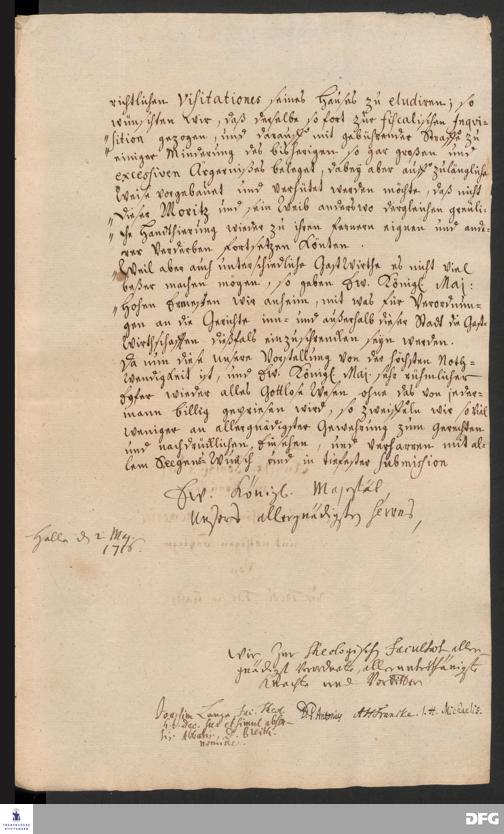 richtlichen Visitationes seines Hauses zu eludiren; so
wünschten wir, daß derselbe so fort zur fiscalischen Inqui-
sition gezogen, und darauff mit gebührender Straffe zu
einiger Minderung des bisherigen so gar großen und
excessiven Ärgernißes beleget, dabey aber auff zulängliche
Weise vorgebauet und verhütet werden möchte, daß nicht
dieser Moritz und sein Weib anderswo dergleichen greuli-
che Handthierung wieder zu ihren fernern eignen und ande-
rer Verderben fortsetzen könten.
Weil aber auch unterschiedliche GastWirthe es nicht viel
beßer machen mögen, so geben Ew. Königl. Maj:
hohen Ermeßen wir anheim, mit was für Verordnun-
gen an die Gerichte inn- und außerhalb dieser Stadt die Gast-
Wirthschafften dießfals einzuschrencken seyn werden.
Da nun diese unsere Vorstellung von der höchsten Noth-
wendigkeit ist, und Ew. Königl. Maj. sehr rühmlicher
Eyfer wieder alles Gottlose Wesen ohne das von jeder-
mann billig gepriesen wird, so zweiffeln wir so viel
weniger an allergnädigster Gewehrung zum gerechten
und nachdrücklichen Einsehen, und verharren mit al-
lem Seegens-Wunsch und in tieffester submission
Ew. Königl. Majestät
Unsers allergnädigsten Herrns,
Halle d 2 Maj.
1716.
Wir Zur Theologischen Facultät aller-
gnädigst Verordnete, allerunterthänigste
Knechte und Vorbitter
Joachim Lange, Fac. Theol.
h. t. Dec. suo et simul absen-
tis Abbatis, D. Breith.
nomine.
D. P. Antonius AHFrancke. J. H. Michaelis.
FRANCKESCHE
STIFTUNGEN
DFG